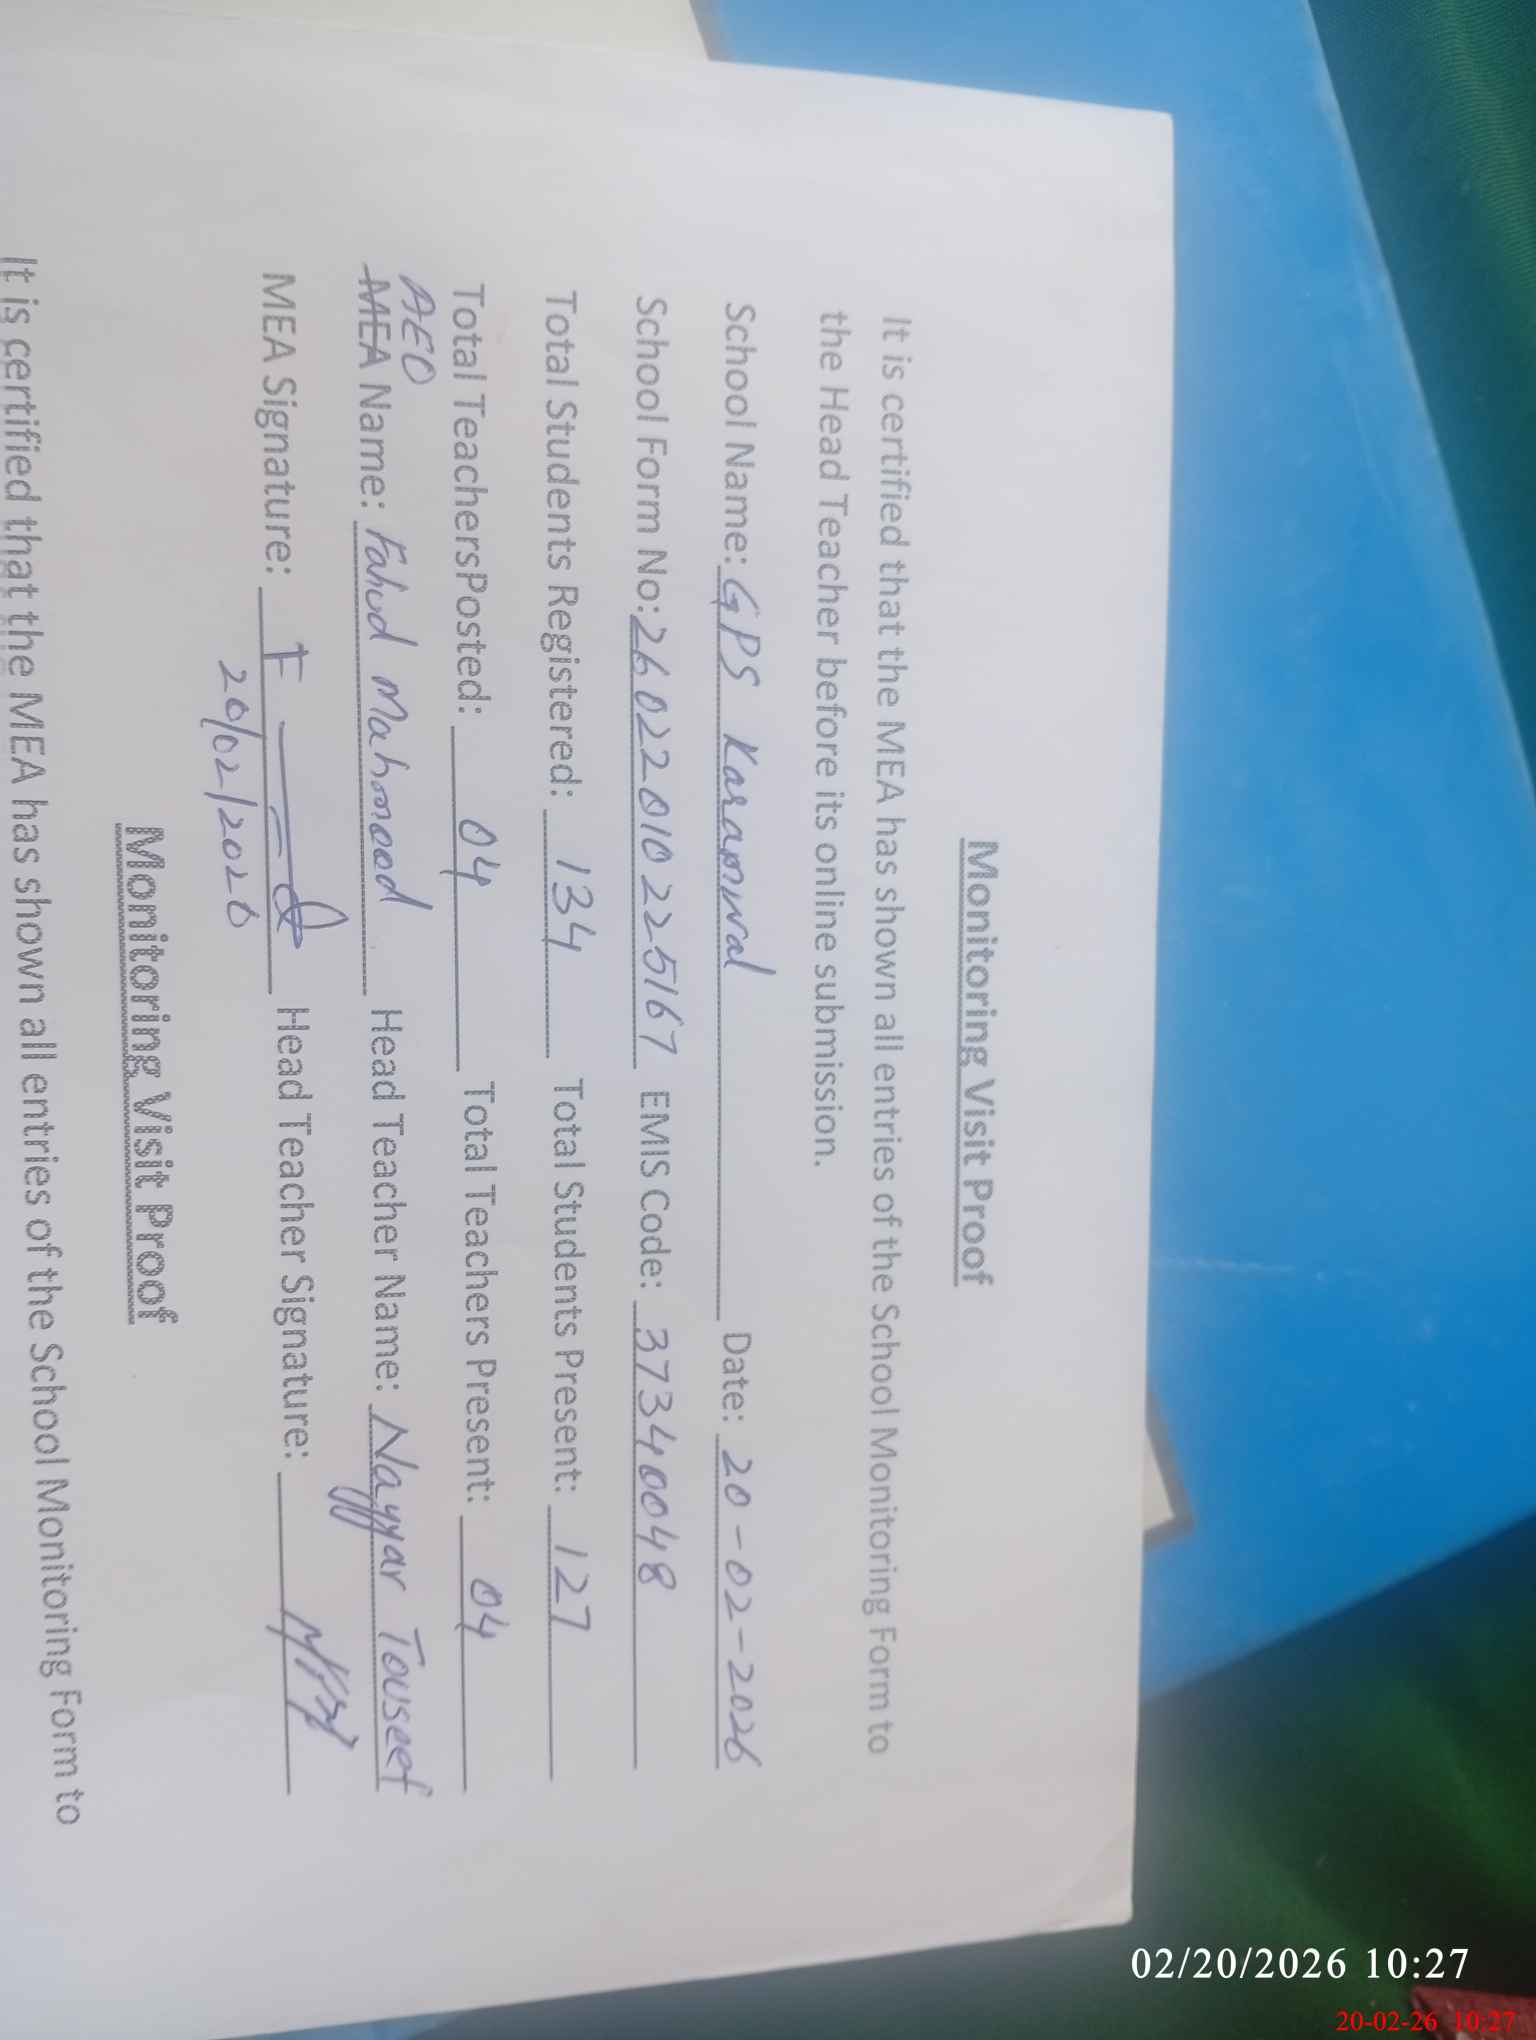 Monitoring Visit Proof
It is certified that the MEA has shown all entries of the School Monitoring Form to
the Head Teacher before its online submission.
School Name: GPS Karamwal Date: 20-02-2026
School Form No: 26022010225167 EMIS Code: 37340048
Total Students Registered: 134 Total Students Present: 127
Total TeachersPosted: 04 Total Teachers Present: 04
AEO
MEA Name: Fahid Mahmood Head Teacher Name: Nayyar Touseef
MEA Signature: Head Teacher Signature:
20/02/2026
Monitoring Visit Proof
It is certified that the MEA has shown all entries of the School Monitoring Form to
02/20/2026 10:27
20-02-26 10:27